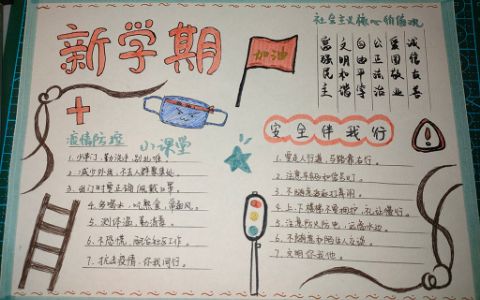 新学期
加油
社会主义核心价值观
富强民主
文明和谐
自由平等
公正法治
爱国敬业
诚信友善
疫情防控
小课堂
1. 少串门,勤洗手,别乱碰。
2. 减少外出,不去人群聚集处。
3. 出门时要正确佩戴口罩。
4. 多喝水,吃熟食,常通风。
5. 测体温,勤消毒。
6. 不恐慌,配合社区工作。
7. 抗击疫情,你我同行。
安全伴我行
1. 要走人行道,马路靠右行。
2. 注意车辆和信号灯。
3. 不随意
4. 上、下楼梯不要拥护,礼让慢行。
5. 注意防火防电,远离水边。
6. 不随意和陌生人交谈。
7. 文明你我他。